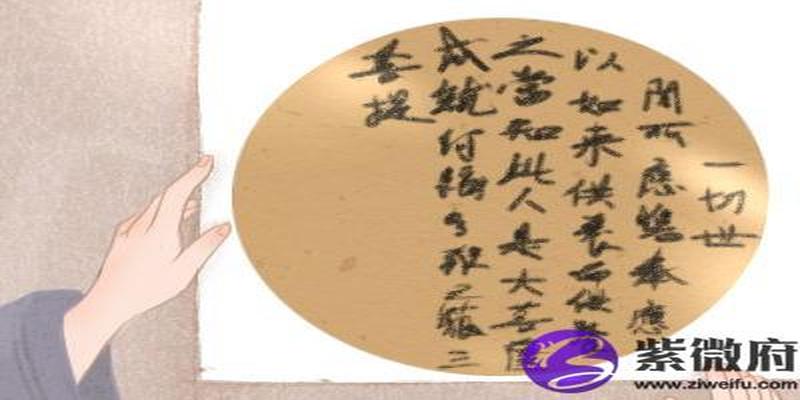 一切世
間所應瞻奉應
以如来供養而供養
之當知此人是大菩薩
成就阿耨多羅三藐三
菩提
紫微府
www.ziweifu.com